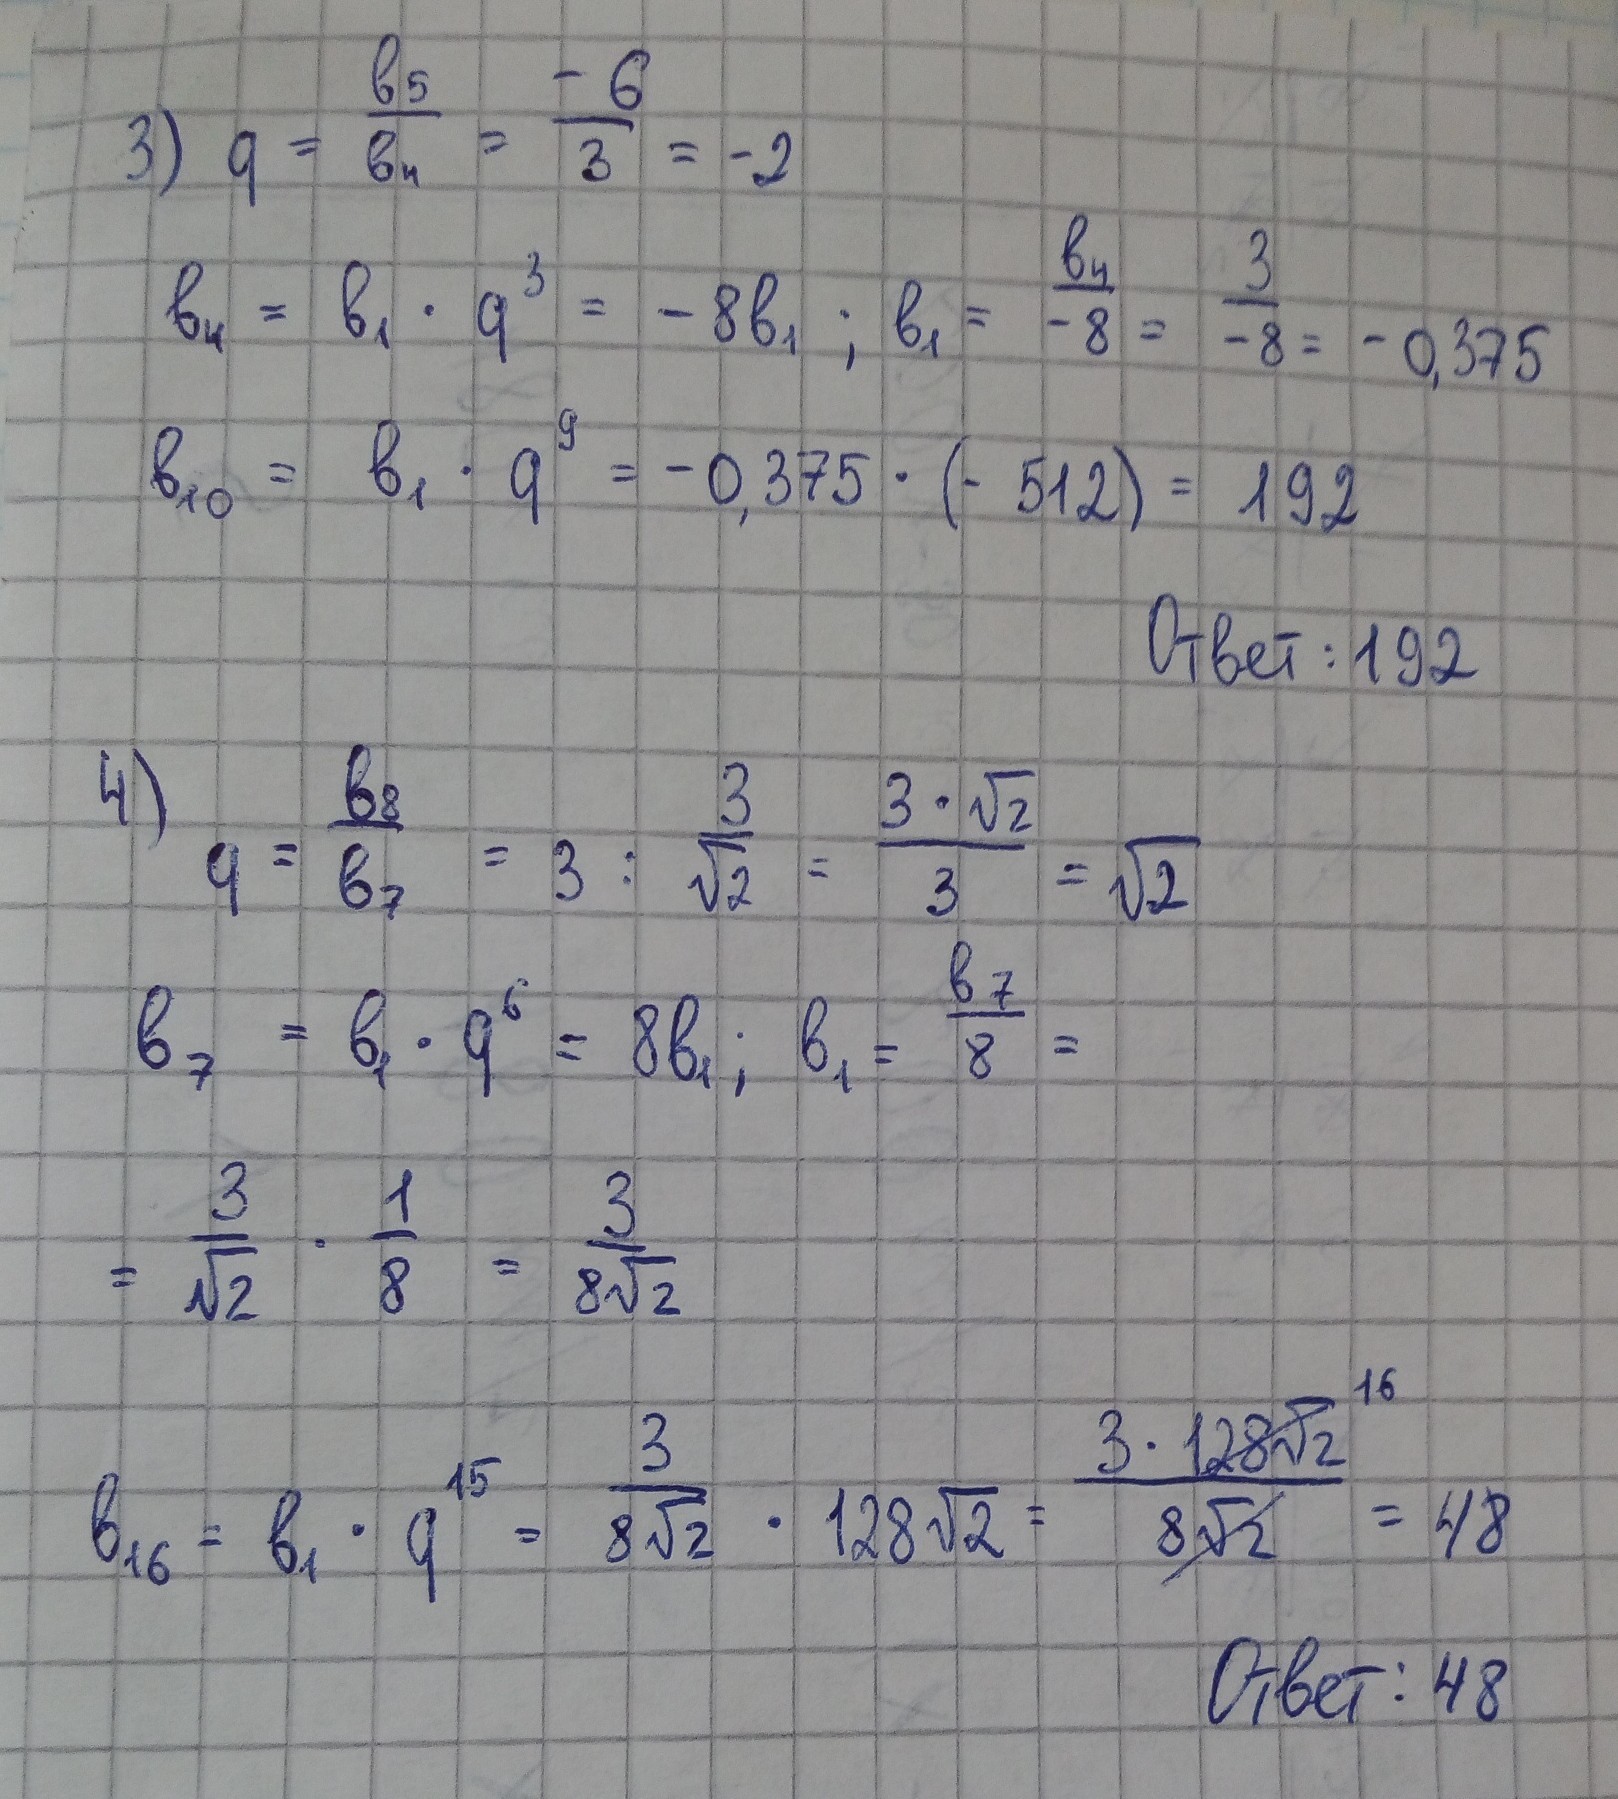 3) q = b₅/b₄ = -6/3 = -2
b₄ = b₁ · q³ = -8b₁ ; b₁ = b₄/-8 = 3/-8 = -0,375
b₁₀ = b₁ · q⁹ = -0,375 · (-512) = 192
Ответ: 192
4) q = b₈/b₇ = 3 : 3/√2 = 3·√2/3 = √2
b₇ = b₁ · q⁶ = 8b₁; b₁ = b₇/8 =
= 3/√2 · 1/8 = 3/8√2
b₁₆ = b₁ · q¹⁵ = 3/8√2 · 128√2 = 3·128√2 16/8√2 = 48
Ответ: 48